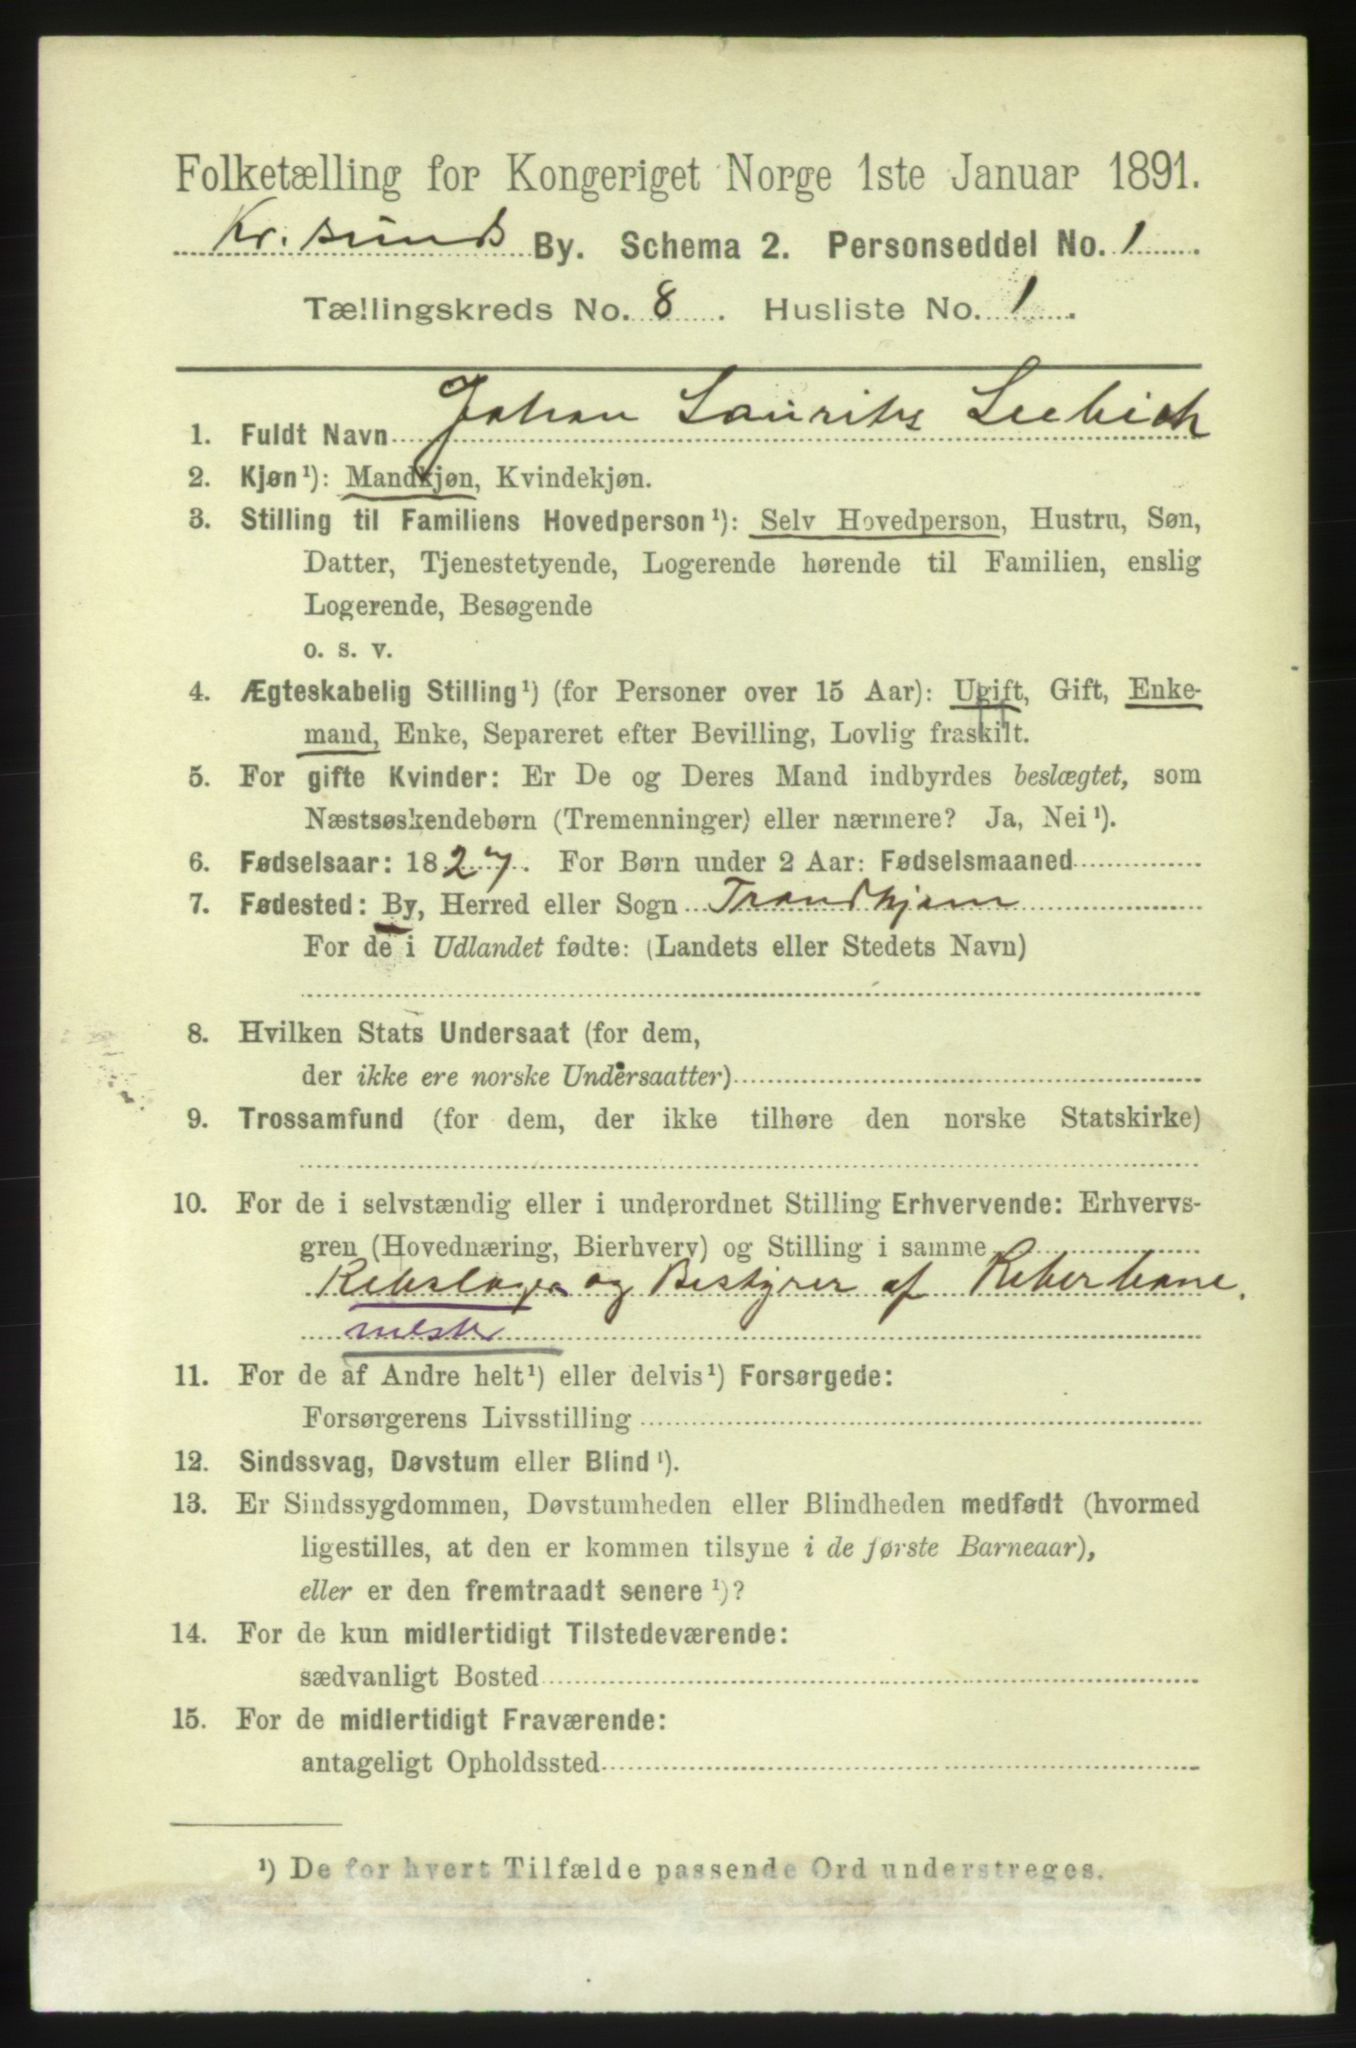 Folketælling for Kongeriget Norge 1ste Januar 1891.
Kr. sunds By. Schema 2. Personseddel No. 1
Tællingskreds No. 8. Husliste No. 1.
1. Fuldt Navn Johan Lauritz Leebich
2. Kjøn¹): Mandkjøn, Kvindekjøn.
3. Stilling til Familiens Hovedperson¹): Selv Hovedperson, Hustru, Søn,
Datter, Tjenestetyende, Logerende hørende til Familien, enslig
Logerende, Besøgende
o. s. v.
4. Ægteskabelig Stilling¹) (for Personer over 15 Aar): Ugift, Gift, Enke-
mand, Enke, Separeret efter Bevilling, Lovlig fraskilt.
5. For gifte Kvinder: Er De og Deres Mand indbyrdes beslægtet, som
Næstsøskendebørn (Tremenninger) eller nærmere? Ja, Nei¹).
6. Fødselsaar: 1827. For Børn under 2 Aar: Fødselsmaaned
7. Fødested: By, Herred eller Sogn Trondhjem
For de i Udlandet fødte: (Landets eller Stedets Navn)
8. Hvilken Stats Undersaat (for dem,
der ikke ere norske Undersaatter)
9. Trossamfund (for dem, der ikke tilhøre den norske Statskirke)
10. For de i selvstændig eller i underordnet Stilling Erhvervende: Erhvervs-
gren (Hovednæring, Bierhverv) og Stilling i samme
Rebslager og Bestyrer af Reberbane.
mester
11. For de af Andre helt¹) eller delvis¹) Forsørgede:
Forsørgerens Livsstilling
12. Sindssvag, Døvstum eller Blind¹).
13. Er Sindssygdommen, Døvstumheden eller Blindheden medfødt (hvormed
ligestilles, at den er kommen tilsyne i de første Barneaar),
eller er den fremtraadt senere¹)?
14. For de kun midlertidigt Tilstedeværende:
sædvanligt Bosted
15. For de midlertidigt Fraværende:
antageligt Opholdssted
¹) De for hvert Tilfælde passende Ord understreges.